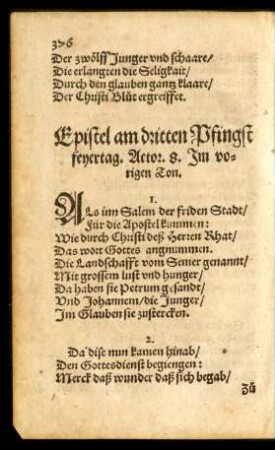 376
Der zwölff Junger vnd schaare/
Die erlangten die Seligkait/
Durch den glauben gantz klaare/
Der Christi Blůt ergreiffet.
Epistel am dritten Pfingst
feyertag. Actor. 8. Im vo-
rigen Ton.
1.
ALs inn Salem der friden Stadt/
Für die Apostel kummen:
Wie durch Christi deß Herren Rhat/
Das wort Gottes angnummen.
Die Landschafft vom Semer genannt/
Mit grossem lust vnd hunger/
Da haben sie Petrum gesandt/
Vnd Johannem/die Junger/
Im Glauben sie zustercken.
2.
Da dise nun kamen hinab/
Den Gottesdienst begiengen:
Merck daß wunder daß sich begab/
Zů